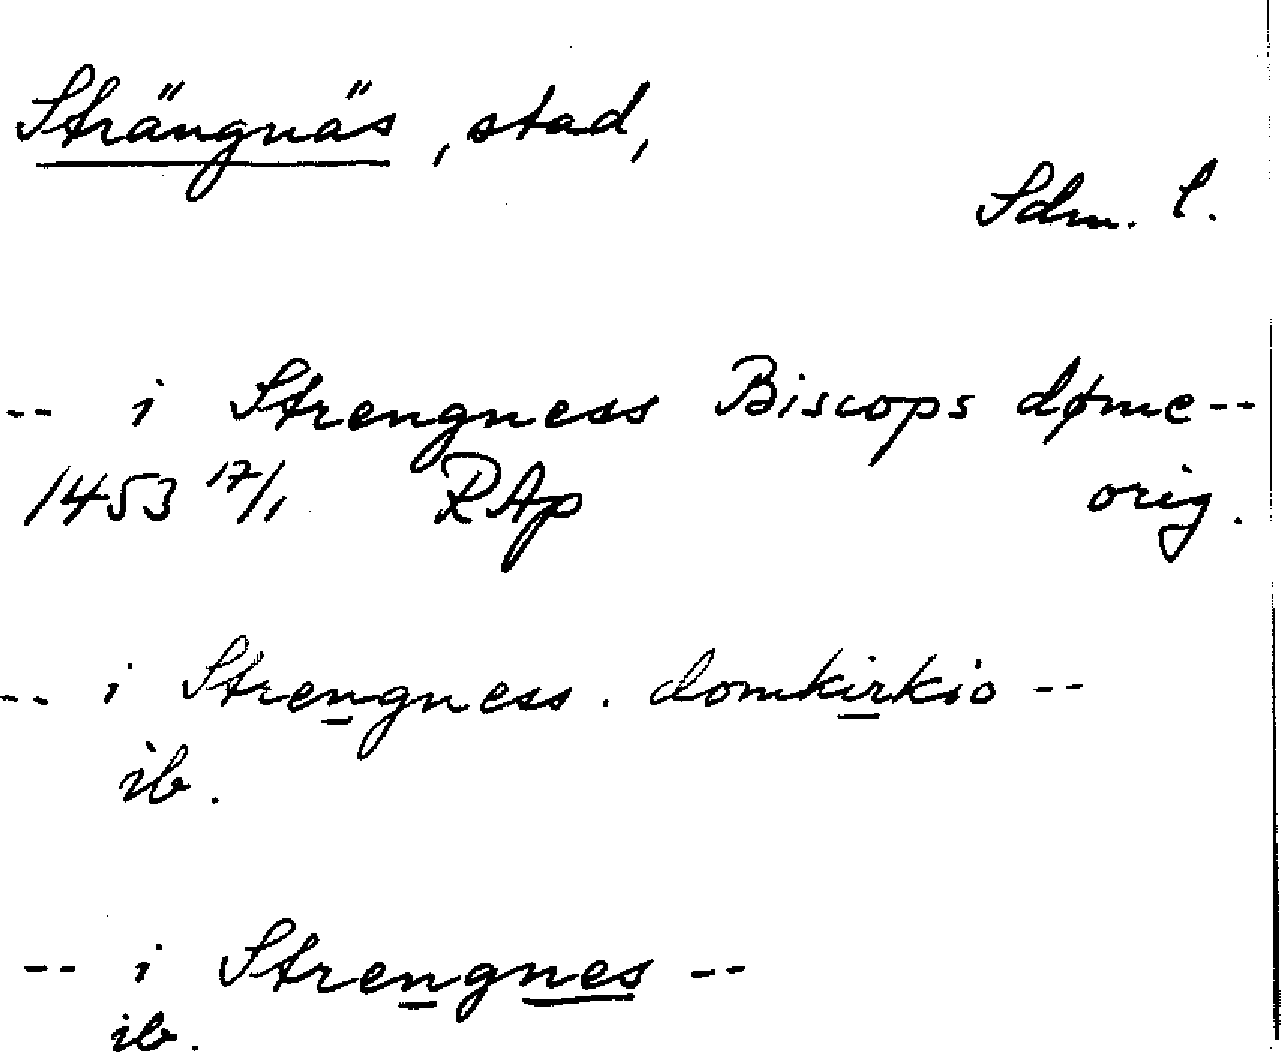 Strängnäs, stad,
Sdm. l.
-- i Strengness Biscops døme --
1453 17/1 RAp orig.
-- i Strengness. domkirkio --
ib.
-- i Strengnes --
ib.